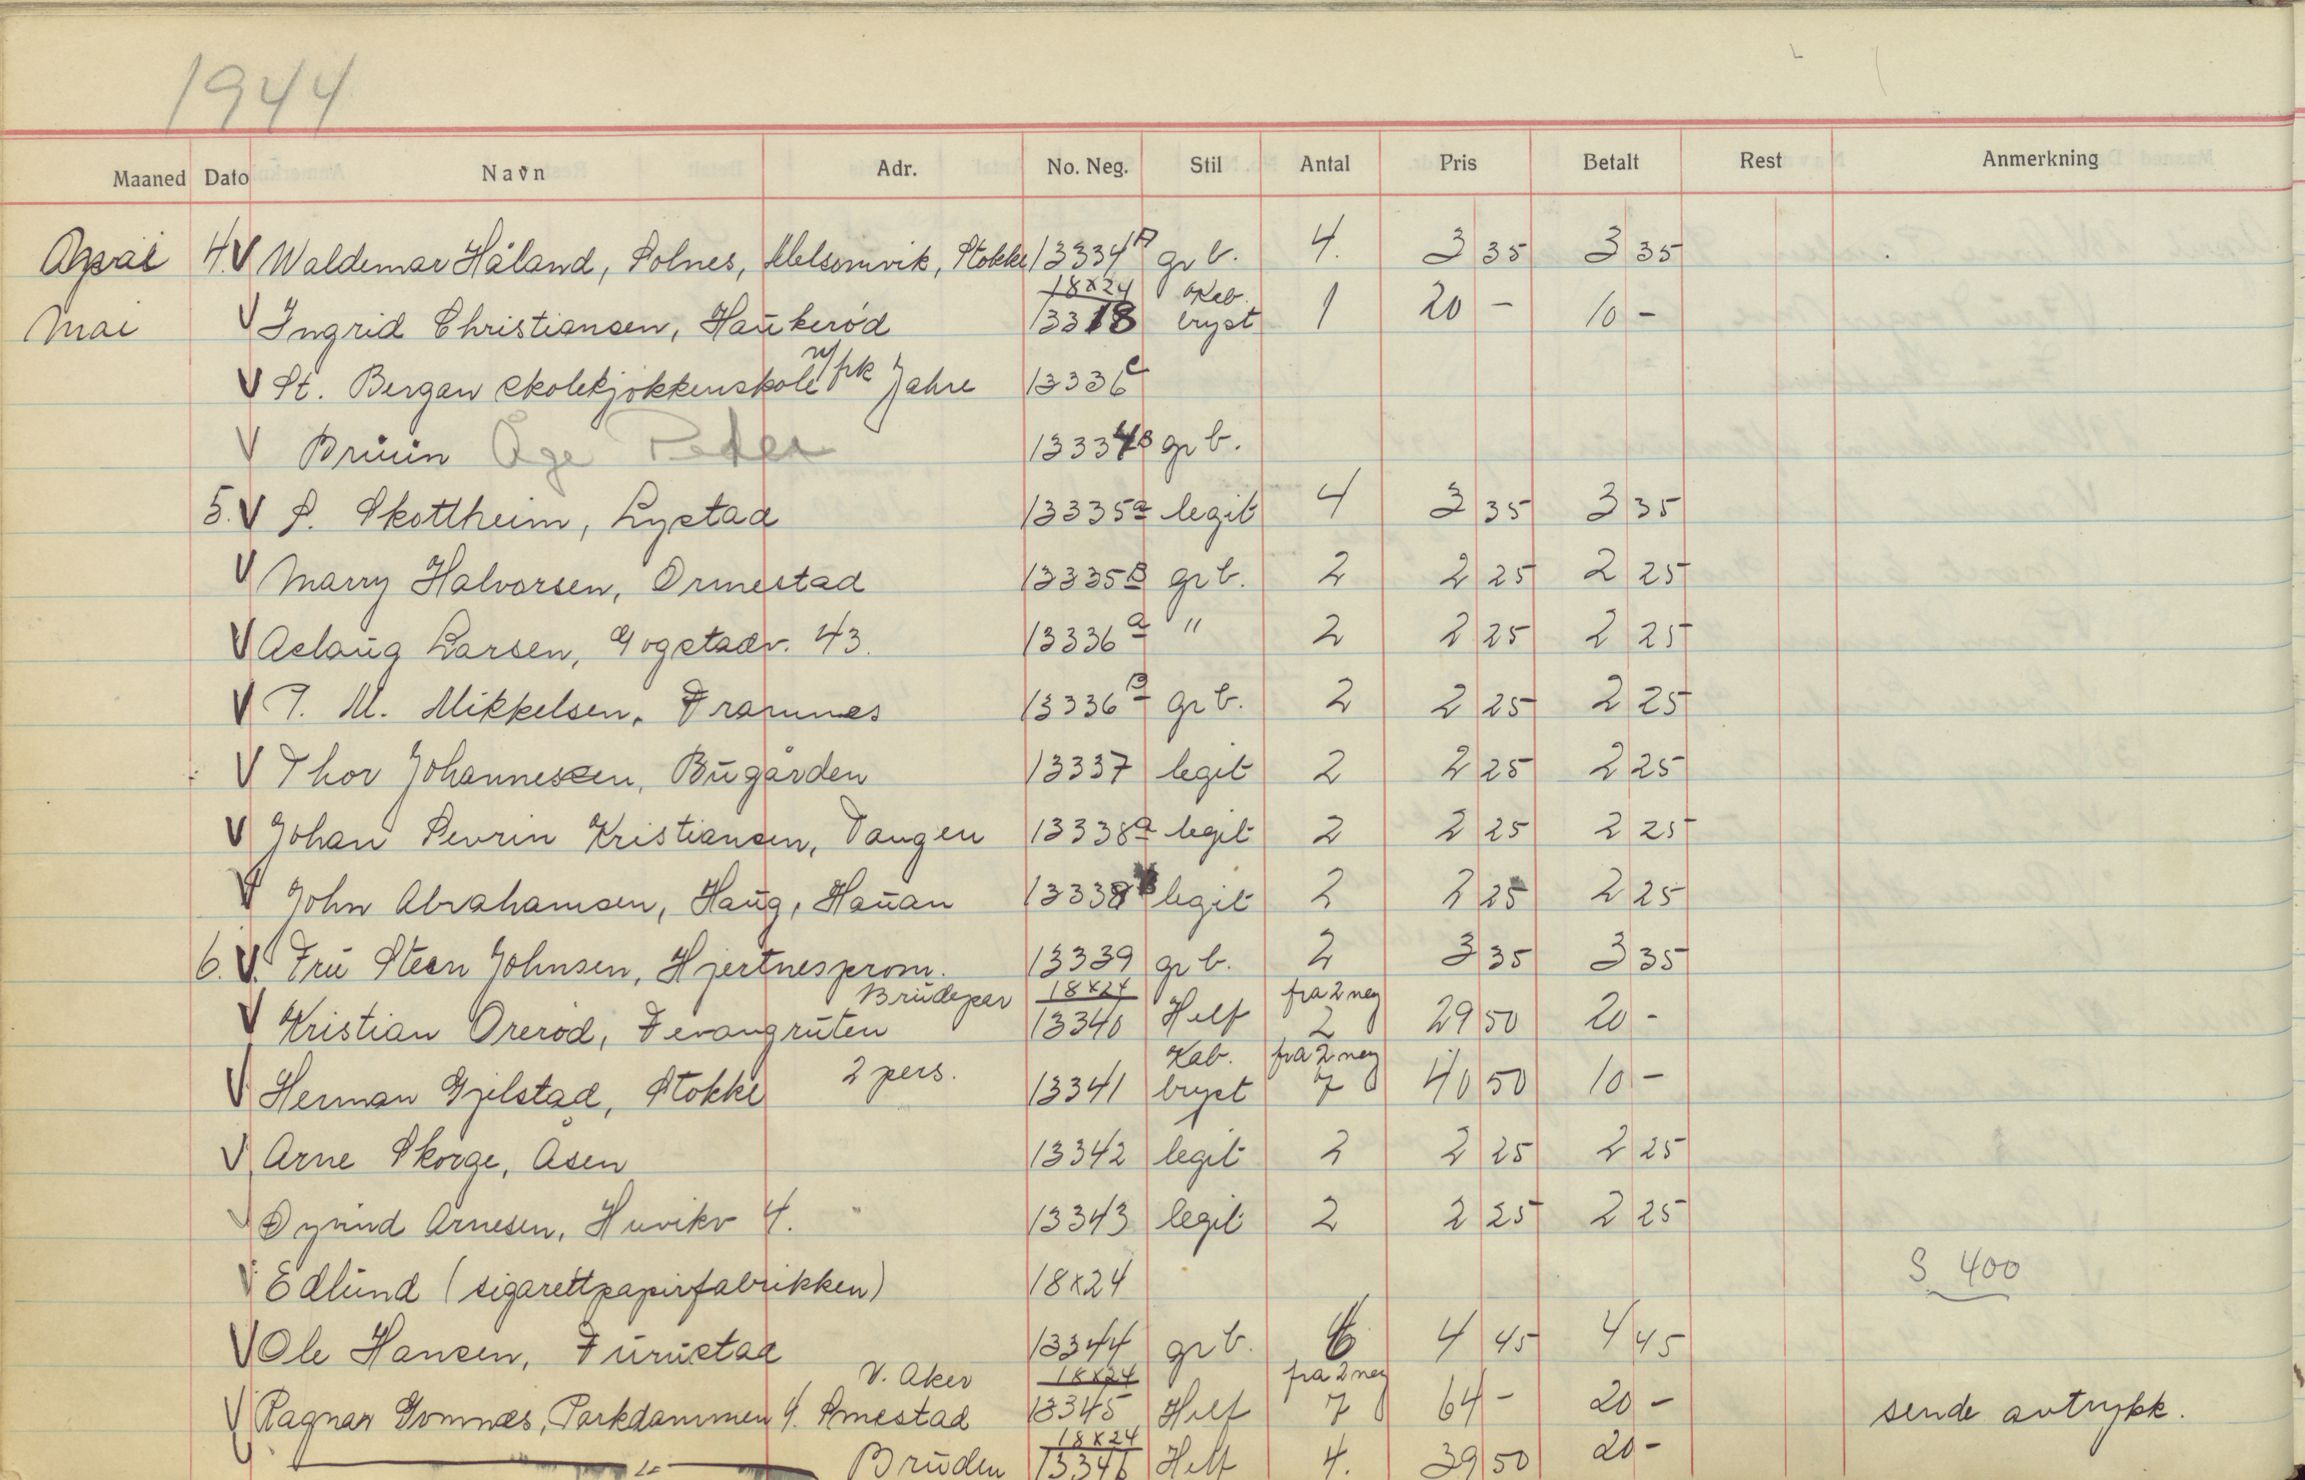 1944
Maaned Dato Navn Adr. No. Neg. Stil Antal Pris Betalt Rest Anmerkning
4. V Waldemar Håland, Solnes, Melsomvik, Stokke 13334A gr b. 4. 3 35 3 35
18x24 Kab.
Mai V Ingrid Christiansen, Haukerød 13318 bryst 1 20 - 10 -
V St. Bergan skolekjøkkenskole v/frk Jahre 13336c
V Bruun Åge Peder 13334B gr b.
5. V S. Skottheim, Lystad 13335a legit 4 3 35 3 35
V Marry Halvorsen, Ormestad 13335B gr b. 2 2 25 2 25
V Aslaug Larsen, Gogstadv. 43. 13336a " 2 2 25 2 25
V T. M. Mikkelsen, Framnes 13336B gr b. 2 2 25 2 25
V Thor Johannessen, Bugården 13337 legit 2 2 25 2 25
V Johan Sevrin Kristiansen, Tangen 13338a legit 2 2 25 2 25
V John Abrahamsen, Haug, Hauan 13338B legit 2 2 25 2 25
6. V. Fru Steen Johnsen, Hjertnesprom. 13339 gr b. 2 3 35 3 35
Brudepar 18x24 fra 2 neg
V Kristian Orerød, Fevangruten 13340 Helf 2 29 50 20 -
2 pers. Kab. fra 2 neg
V Herman Gjelstad, Stokke 13341 bryst 7 40 50 10 -
V Arne Skorge, Åsen 13342 legit 2 2 25 2 25
V Øyvind Arnesen, Huvikv 4. " 13343 legit 2 2 25 2 25
V Edlund (sigarettpapirfabrikken) 18x24 S 400
V Ole Hansen, Furustad 13344 gr b. 6 4 45 4 45
V. Aker 18x24 fra 2 neg
V Ragnar Gromnæs, Parkdammen 4. Smestad 13345 Helf 7 64 - 20 - sende avtrykk.
18x24
Bruden 13346 Helf 4. 39 50 20 -